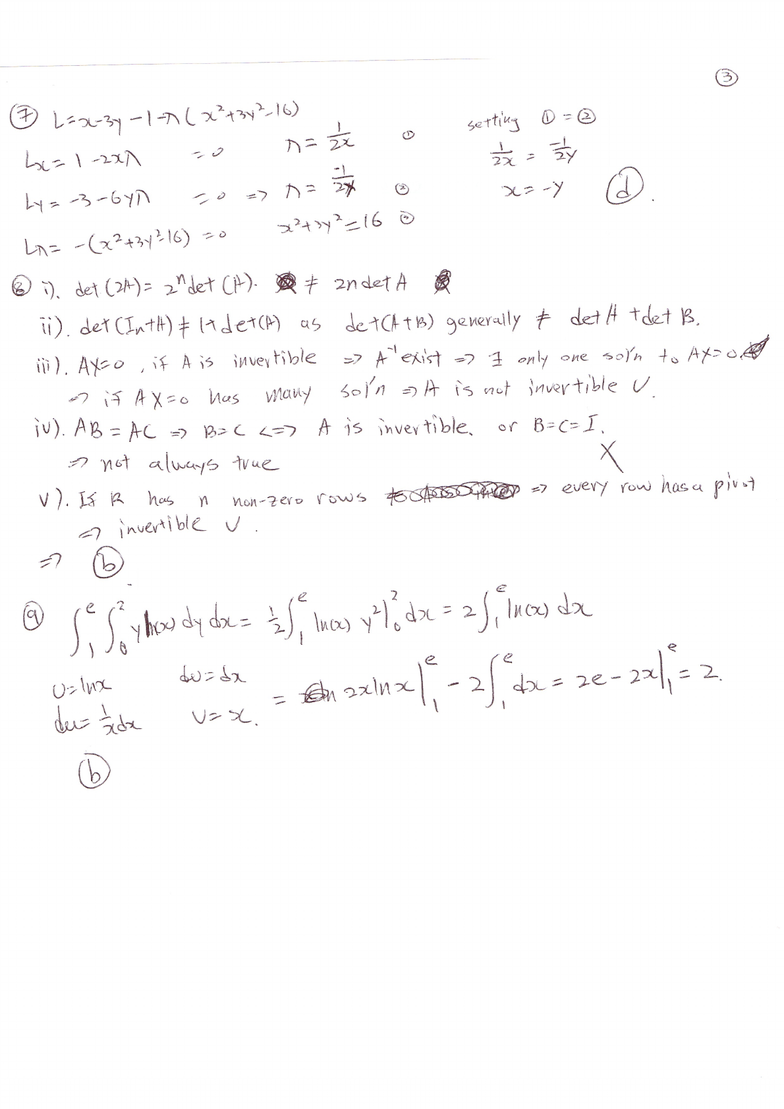 ③
⑦ L=x-3y-1-λ(x²+3y²-16)
Lx=1-2xλ =0 λ=1/2x ①
Ly=-3-6yλ =0 => λ=-1/2y ②
Lλ=-(x²+3y²-16)=0 x²+3y²=16 ③
setting ①=②
1/2x = -1/2y
x=-y ⓓ.
⑧ i). det(2A)=2ⁿdet(A). ≠ 2n det A
ii). det(In+A)≠1+det(A) as det(A+B) generally ≠ det A + det B.
iii). AX=0, if A is invertible => A⁻¹ exist => ∃ only one sol'n to AX=0.
=> if AX=0 has many sol'n => A is not invertible ✓.
iv). AB=AC => B=C <=> A is invertible. or B=C=I.
=> not always true X
v). If R has n non-zero rows => every row has a pivot
=> invertible ✓.
=> ⓑ
⑨ ∫₁ᵉ∫₀² y ln(x) dy dx = ½∫₁ᵉ ln(x) y²|₀² dx = 2∫₁ᵉ ln(x) dx
u=lnx dv=dx
du=1/x dx v=x.
= 2x ln x|₁ᵉ - 2∫₁ᵉ dx = 2e-2x|₁ᵉ = 2.
ⓑ